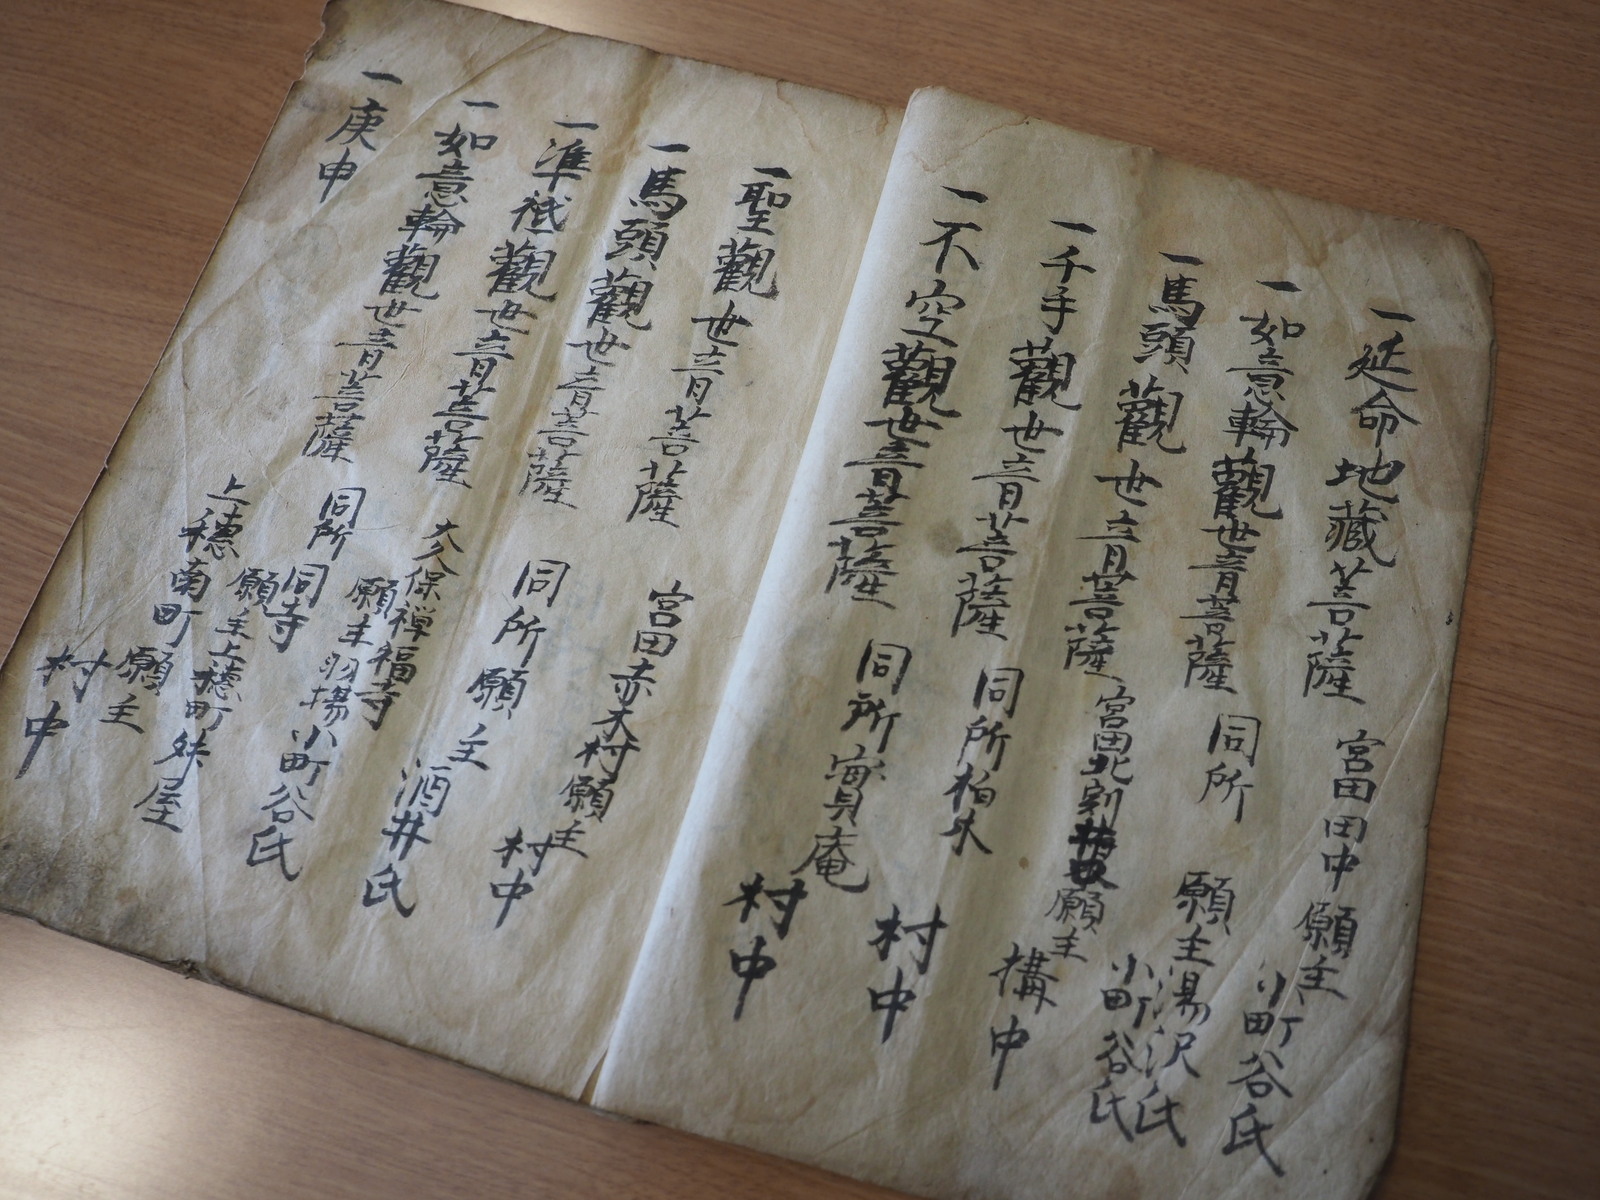 一延命地藏菩薩 宮田田中願主 小町谷氏
一如意輪觀世音菩薩 同所 願主湯沢氏 小町谷氏
一馬頭觀世音菩薩 宮田北割 願主 構中
一千手觀世音菩薩 同所柏木 村中
一不空觀世音菩薩 同所寳庵 村中
一聖觀世音菩薩 宮田赤木村願主 村中
一馬頭觀世音菩薩 同所願主 酒井氏
一準胝觀世音菩薩 大久保禅福寺 願主羽場小町谷氏
一如意輪觀世音菩薩 同所 同寺 願主上穗町 屋
一庚申 上穗南町願主 村中